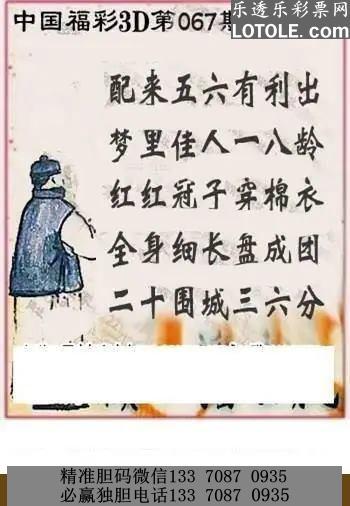 中国福彩3D第067期
乐透乐彩票网
LOTOLE.COM
配来五六有利出
梦里佳人一八龄
红红冠子穿棉衣
全身细长盘成团
二十围城三六分
精准胆码微信133 7087 0935
必赢独胆电话133 7087 0935